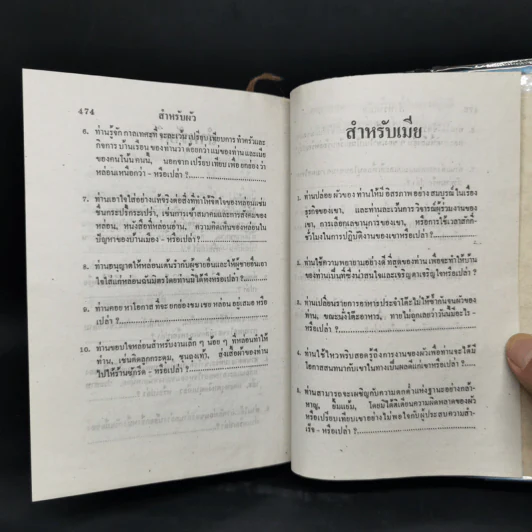 474
สำหรับผัว
6. ท่านรู้จัก กาลเทศะที่ จะละเว้น เปรียบเทียบการ ทำครัวและ
กิจการ บ้านเรือน ของท่านว่า ด้อยกว่า แม่ของท่าน และเมีย
ของคนในบ้านนี้, นอกจาก เปรียบเทียบ เพื่อ ยกย่อง ว่า
หล่อนเหนือกว่า - หรือเปล่า ?
7. ท่านเอาใจใส่อย่างแท้จริงต่อสิ่งที่ทำให้จิตใจของหล่อนแช่ม
ชื่นกระปรี้กระเปร่า, เช่นการเข้าสมาคมและการสังคมของ
หล่อน, หนังสือที่หล่อนอ่าน, ความคิดเห็นของหล่อนใน
ปัญหาของบ้านเมือง - หรือเปล่า ?
8. ท่านอนุญาตให้หล่อนเต้นรำกับผู้ชายอื่นและให้ผู้ชายอื่นเอา
ใจใส่แก่หล่อนฉันมิตรโดยท่านมิได้หึงหรือเปล่า ?
9. ท่านคอย หาโอกาส ที่จะ ยกย่อง ชมเชย หล่อน อยู่เสมอ หรือ
เปล่า ?
10. ท่านขอบใจหล่อนสำหรับงานเล็ก ๆ น้อย ๆ ที่หล่อนทำให้
ท่าน, เช่นติดลูกกระดุม, ชุนถุงเท้า, ส่งเสื้อผ้าของท่าน
ไปให้ร้านซักรีด - หรือเปล่า ?
สำหรับเมีย
1. ท่านปล่อย ผัวของ ท่าน ให้มี อิสรภาพ อย่าง สมบูรณ์ ในเรื่อง
ธุรกิจของเขา, และท่านละเว้นการ วิจารณ์ผู้ร่วมงานของ
เขา, การเลือกเลขานุการของเขา, หรือการใช้เวลาสักกี่
ชั่วโมงในการปฏิบัติงานของเขาหรือเปล่า ?
2. ท่านใช้ความพยายามอย่าง ดี ที่สุดของ ท่าน เพื่อจะทำให้บ้าน
ของท่านเป็นที่ซึ่งน่าสนใจและเจริญตาเจริญใจหรือเปล่า ?
3. ท่านเปลี่ยนรายการอาหารประจำโต๊ะไม่ให้ซ้ำกันจนผัวของ
ท่าน, ขณะนั่งโต๊ะอาหาร, ทายไม่ถูกเลยว่าวันนี้มีอะไร-
หรือเปล่า ?
4. ท่านใช้ไหวพริบสอดรู้ถึงการงานของผัวเพื่อท่านจะได้มี
โอกาสสนทนากับเขาในทางเป็นผลดีแก่เขาหรือเปล่า ?
5. ท่านสามารถจะเผชิญกับความตกต่ำแห่งฐานะอย่างกล้า
หาญ, ยิ้มแย้ม, โดยมิได้ติเตียนความผิดพลาดของผัว
หรือเปรียบเทียบเขาอย่างไม่พอใจกับผู้ประสบความสำ-
เร็จ - หรือเปล่า ?